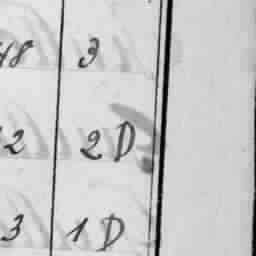 48 3
2 2 D
3 1 D